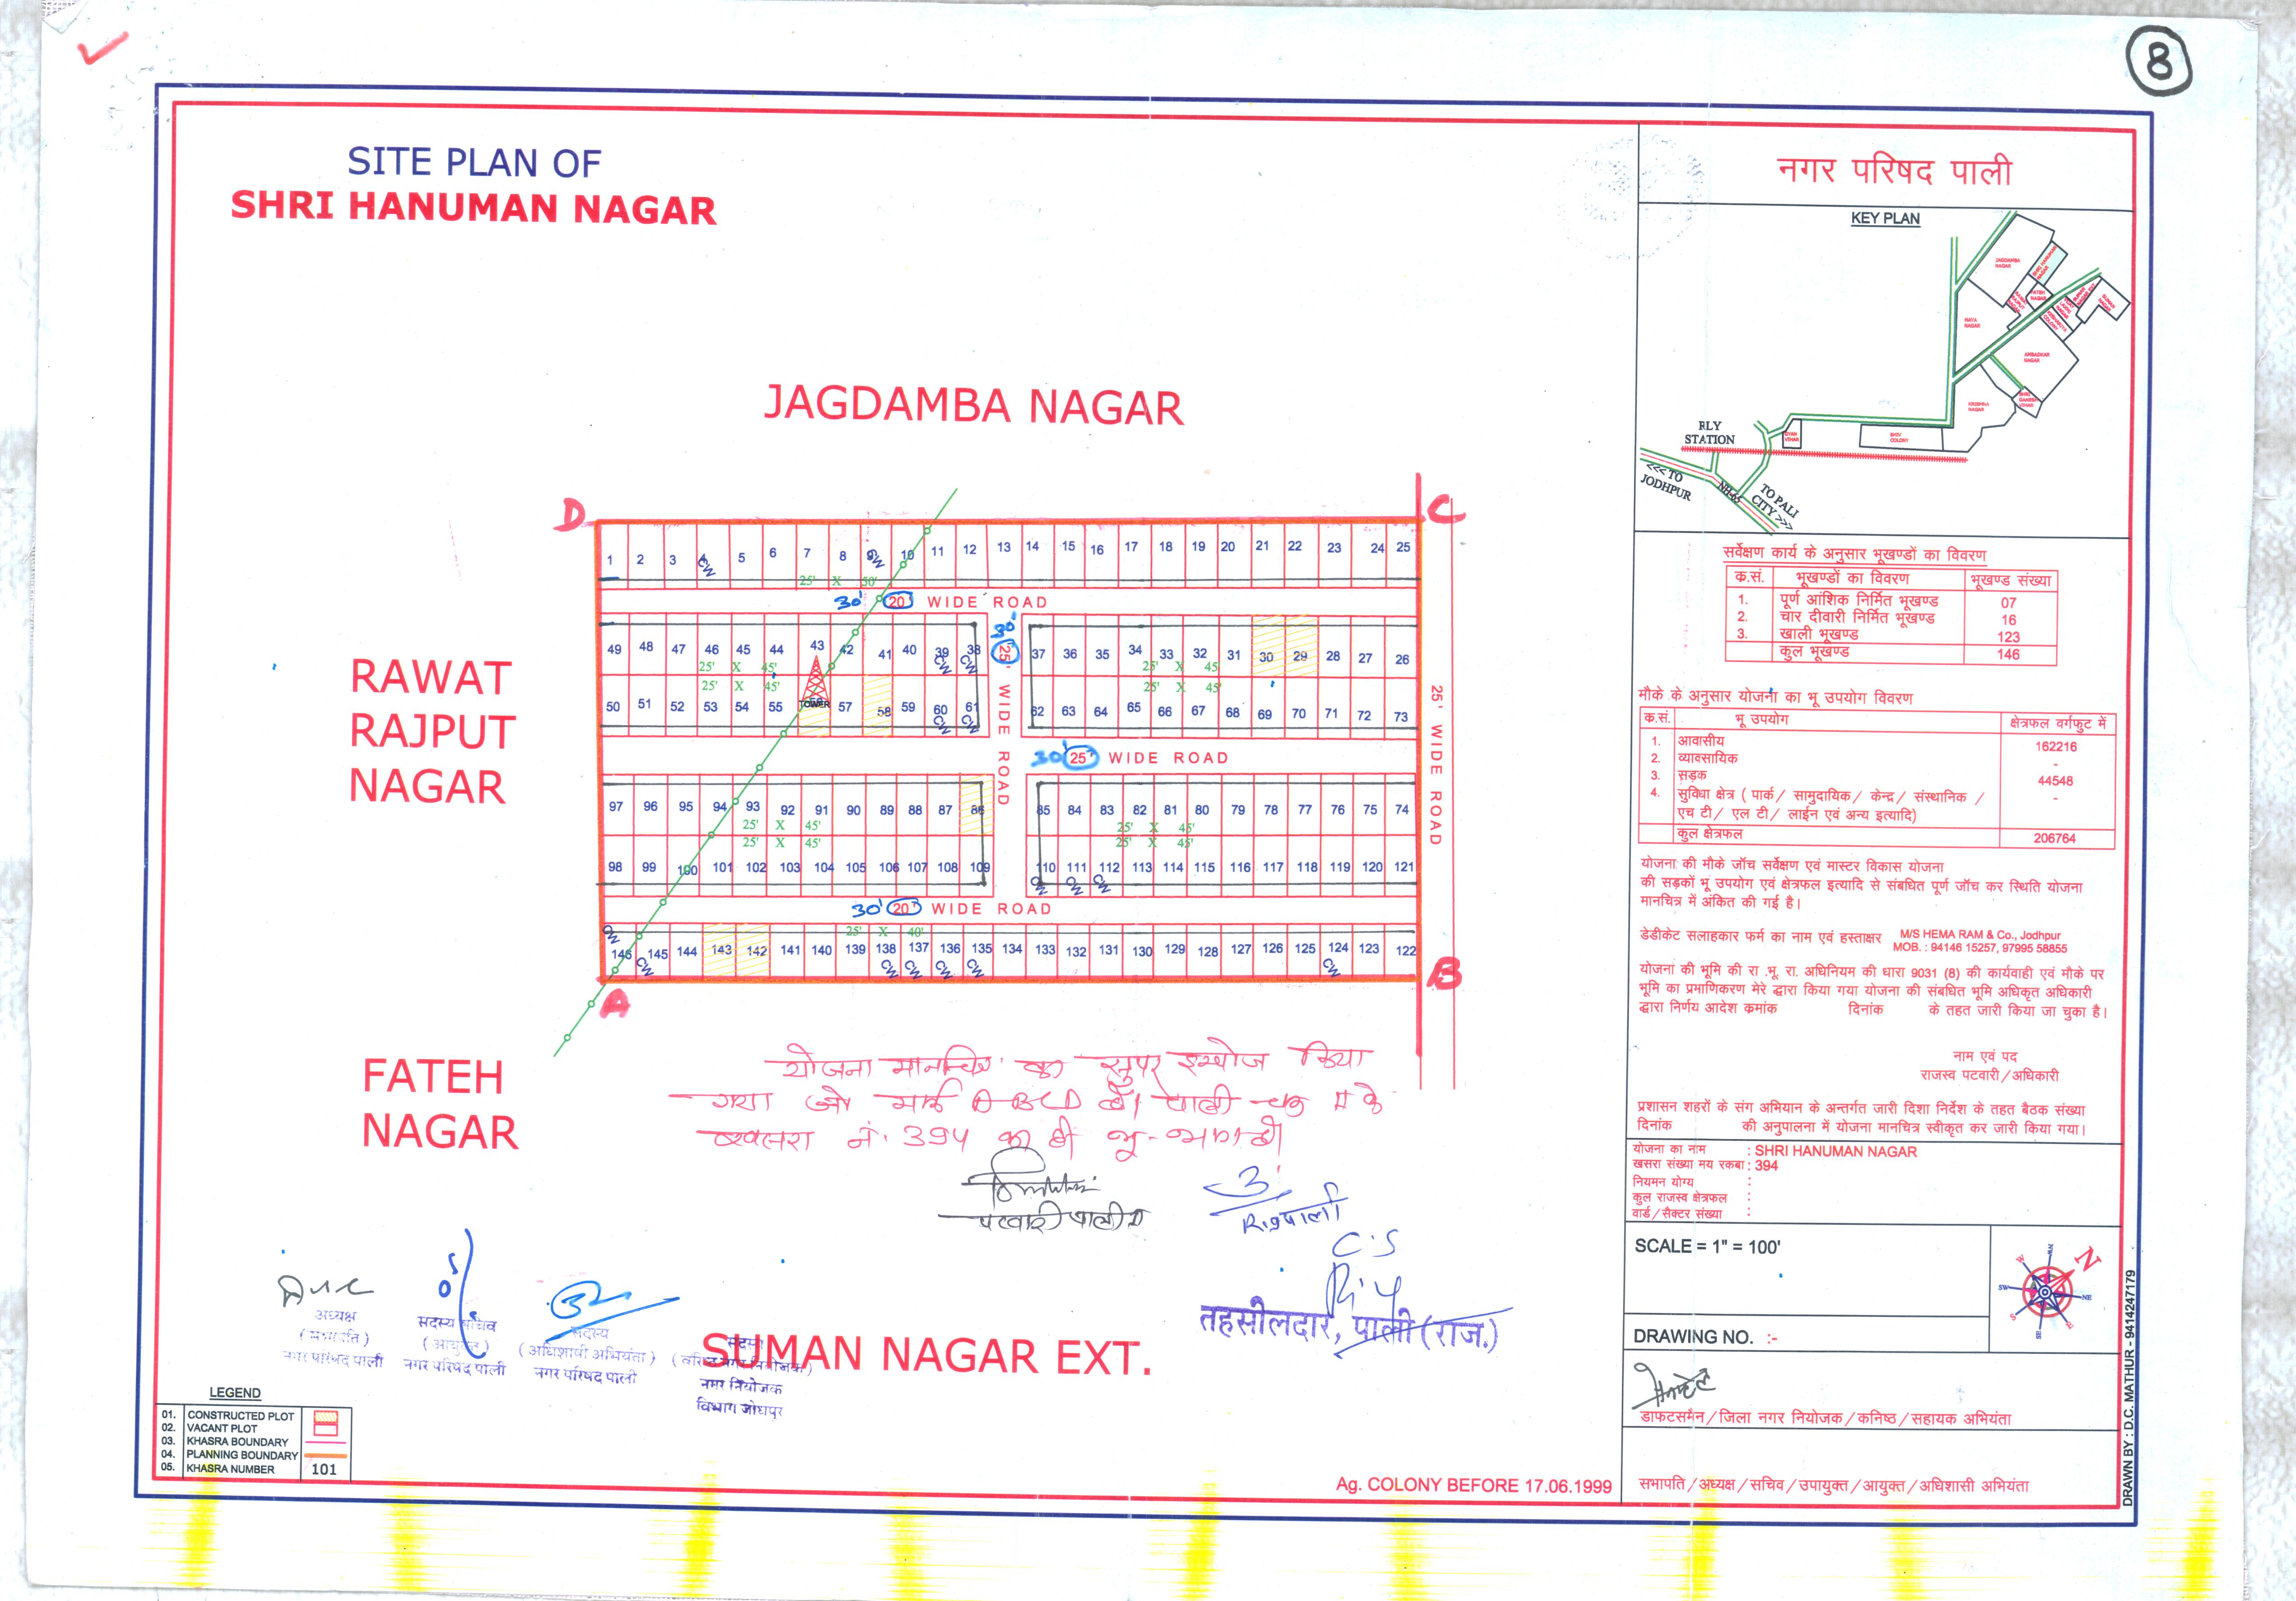 8
SITE PLAN OF
SHRI HANUMAN NAGAR
JAGDAMBA NAGAR
RAWAT
RAJPUT
NAGAR
FATEH
NAGAR
SUMAN NAGAR EXT.
D
C
1 2 3 4 5 6 7 8 9 10 11 12 13 14 15 16 17 18 19 20 21 22 23 24 25
CW CW
25' X 50'
30' 20' WIDE ROAD
49 48 47 46 45 44 43 42 41 40 39 38 37 36 35 34 33 32 31 30 29 28 27 26
CW CW
25' X 45' 25' X 45'
25' X 45' 25' X 45'
TOWER
50 51 52 53 54 55 56 57 58 59 60 61 62 63 64 65 66 67 68 69 70 71 72 73
CW CW
30' 25' WIDE ROAD
30' 25' WIDE ROAD
25' WIDE ROAD
97 96 95 94 93 92 91 90 89 88 87 86 85 84 83 82 81 80 79 78 77 76 75 74
25' X 45' 25' X 45'
25' X 45' 25' X 45'
98 99 100 101 102 103 104 105 106 107 108 109 110 111 112 113 114 115 116 117 118 119 120 121
CW CW CW
30' 20' WIDE ROAD
25' X 40'
146 145 144 143 142 141 140 139 138 137 136 135 134 133 132 131 130 129 128 127 126 125 124 123 122
CW CW CW CW CW CW CW
A
B
योजना मानचित्र का सुपर इम्पोज किया
गया जो मार्क ABCD है। पाली चक II के
खसरा नं. 394 का ही भू-भाग है।
पटवारी पाली II
R.I. पाली
C.S
तहसीलदार, पाली (राज.)
अध्यक्ष
(सभापति)
नगर परिषद पाली
सदस्य सचिव
(आयुक्त)
नगर परिषद पाली
सदस्य
(अधिशाषी अभियंता)
नगर परिषद पाली
सदस्य
(वरिष्ठ नगर नियोजक)
नगर नियोजक
विभाग जोधपुर
LEGEND
01. CONSTRUCTED PLOT
02. VACANT PLOT
03. KHASRA BOUNDARY
04. PLANNING BOUNDARY
05. KHASRA NUMBER 101
Ag. COLONY BEFORE 17.06.1999
नगर परिषद पाली
KEY PLAN
JAGDAMBA NAGAR
SHRI HANUMAN NAGAR
RAWAT RAJPUT NAGAR
FATEH NAGAR
SUMAN NAGAR EXT
SUMAN NAGAR
MAYA NAGAR
AMBADKAR NAGAR
KRISHNA NAGAR
SHRI GANESH VIHAR
GYAN VIHAR
SHIV COLONY
RLY STATION
<<< TO JODHPUR
NH-65
TO PALI CITY >>>
सर्वेक्षण कार्य के अनुसार भूखण्डों का विवरण
क.सं. भूखण्डों का विवरण भूखण्ड संख्या
1. पूर्ण आंशिक निर्मित भूखण्ड 07
2. चार दीवारी निर्मित भूखण्ड 16
3. खाली भूखण्ड 123
कुल भूखण्ड 146
मौके के अनुसार योजना का भू उपयोग विवरण
क.सं. भू उपयोग क्षेत्रफल वर्गफुट में
1. आवासीय 162216
2. व्यावसायिक -
3. सड़क 44548
4. सुविधा क्षेत्र ( पार्क/ सामुदायिक/ केन्द्र/ संस्थानिक / -
एच टी/ एल टी/ लाईन एवं अन्य इत्यादि)
कुल क्षेत्रफल 206764
योजना की मौके जॉच सर्वेक्षण एवं मास्टर विकास योजना
की सड़कों भू उपयोग एवं क्षेत्रफल इत्यादि से संबधित पूर्ण जॉच कर स्थिति योजना
मानचित्र में अंकित की गई है।
डेडीकेट सलाहकार फर्म का नाम एवं हस्ताक्षर M/S HEMA RAM & Co., Jodhpur
MOB. : 94146 15257, 97995 58855
योजना की भूमि की रा .भू. रा. अधिनियम की धारा 9031 (8) की कार्यवाही एवं मौके पर
भूमि का प्रमाणिकरण मेरे द्वारा किया गया योजना की संबधित भूमि अधिकृत अधिकारी
द्वारा निर्णय आदेश कमांक दिनांक के तहत जारी किया जा चुका है।
नाम एवं पद
राजस्व पटवारी/अधिकारी
प्रशासन शहरों के संग अभियान के अन्तर्गत जारी दिशा निर्देश के तहत बैठक संख्या
दिनांक की अनुपालना में योजना मानचित्र स्वीकृत कर जारी किया गया।
योजना का नाम : SHRI HANUMAN NAGAR
खसरा संख्या मय रकबा : 394
नियमन योग्य :
कुल राजस्व क्षेत्रफल :
वार्ड/सैक्टर संख्या :
SCALE = 1" = 100'
N
NW
W
SW
S
SE
E
NE
DRAWING NO. :-
डाफटसमैन/जिला नगर नियोजक/कनिष्ठ/सहायक अभियंता
सभापति/अध्यक्ष/सचिव/उपायुक्त/आयुक्त/अधिशासी अभियंता
DRAWN BY : D.C. MATHUR - 9414247179